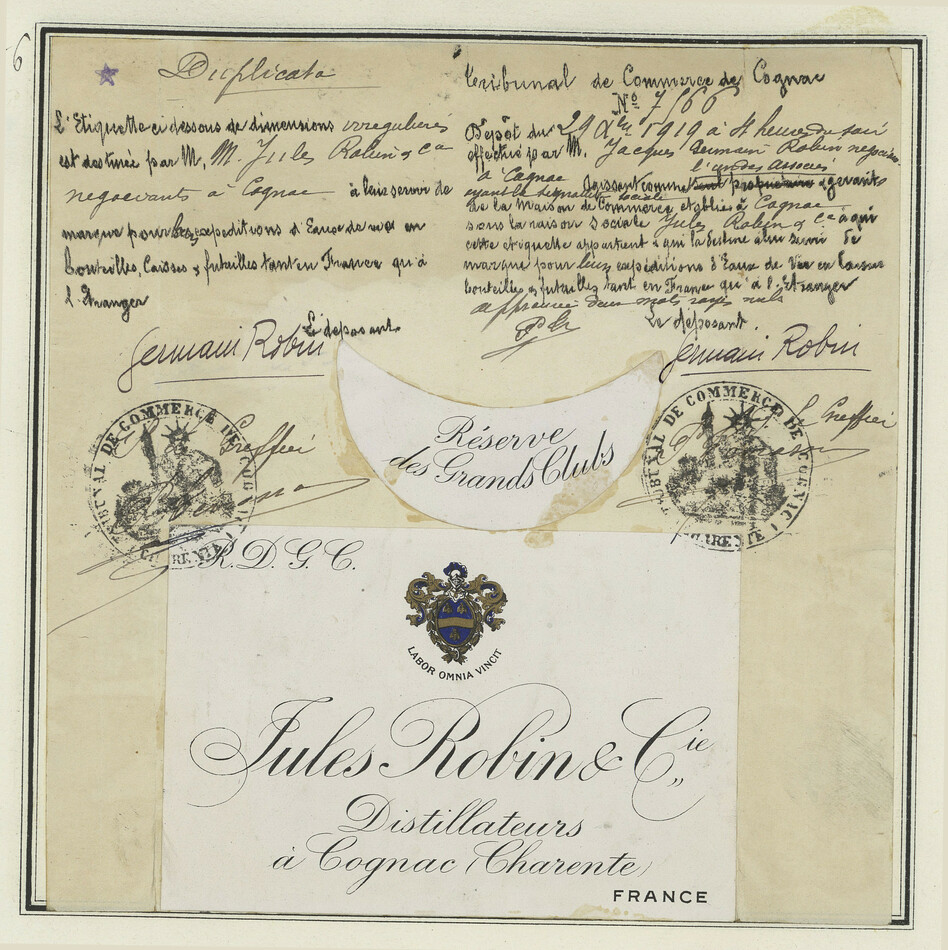 6
Duplicata
L'Etiquette ci dessous de dimensions irregulieres
est destinée par M. M. Jules Robin & Cie
negociants à Cognac à lui servir de
marque pour les expeditions d'Eaux de vie en
bouteilles, Caisses & futailles tant en France qu'à
l'Etranger
Le deposant
Germain Robin
Le Greffier
Tribunal de Commerce de Cognac
No 7166
Dépôt du 29 Xbre 1919 à 4 heures du soir
effectué par M. Jacques Germain Robin negociant
à Cognac l'un des associés
ayant la signature sociale agissant comme seul proprietaire & gerant
de la Maison de Commerce établie à Cognac
sous la raison sociale Jules Robin & Cie à qui
cette etiquette appartient & qui la destine à lui servir de
marque pour leurs expéditions d'Eaux de Vie en caisses
bouteilles & futailles tant en France qu'à l'Etranger
approuvé deux mots rayés nuls
Le deposant
Germain Robin
Le Greffier
TRIBUNAL DE COMMERCE DE COGNAC
CHARENTE
TRIBUNAL DE COMMERCE DE COGNAC
CHARENTE
Réserve
des Grands Clubs
R. D. G. C.
LABOR OMNIA VINCIT
Jules Robin & Cie
Distillateurs
à Cognac (Charente)
FRANCE